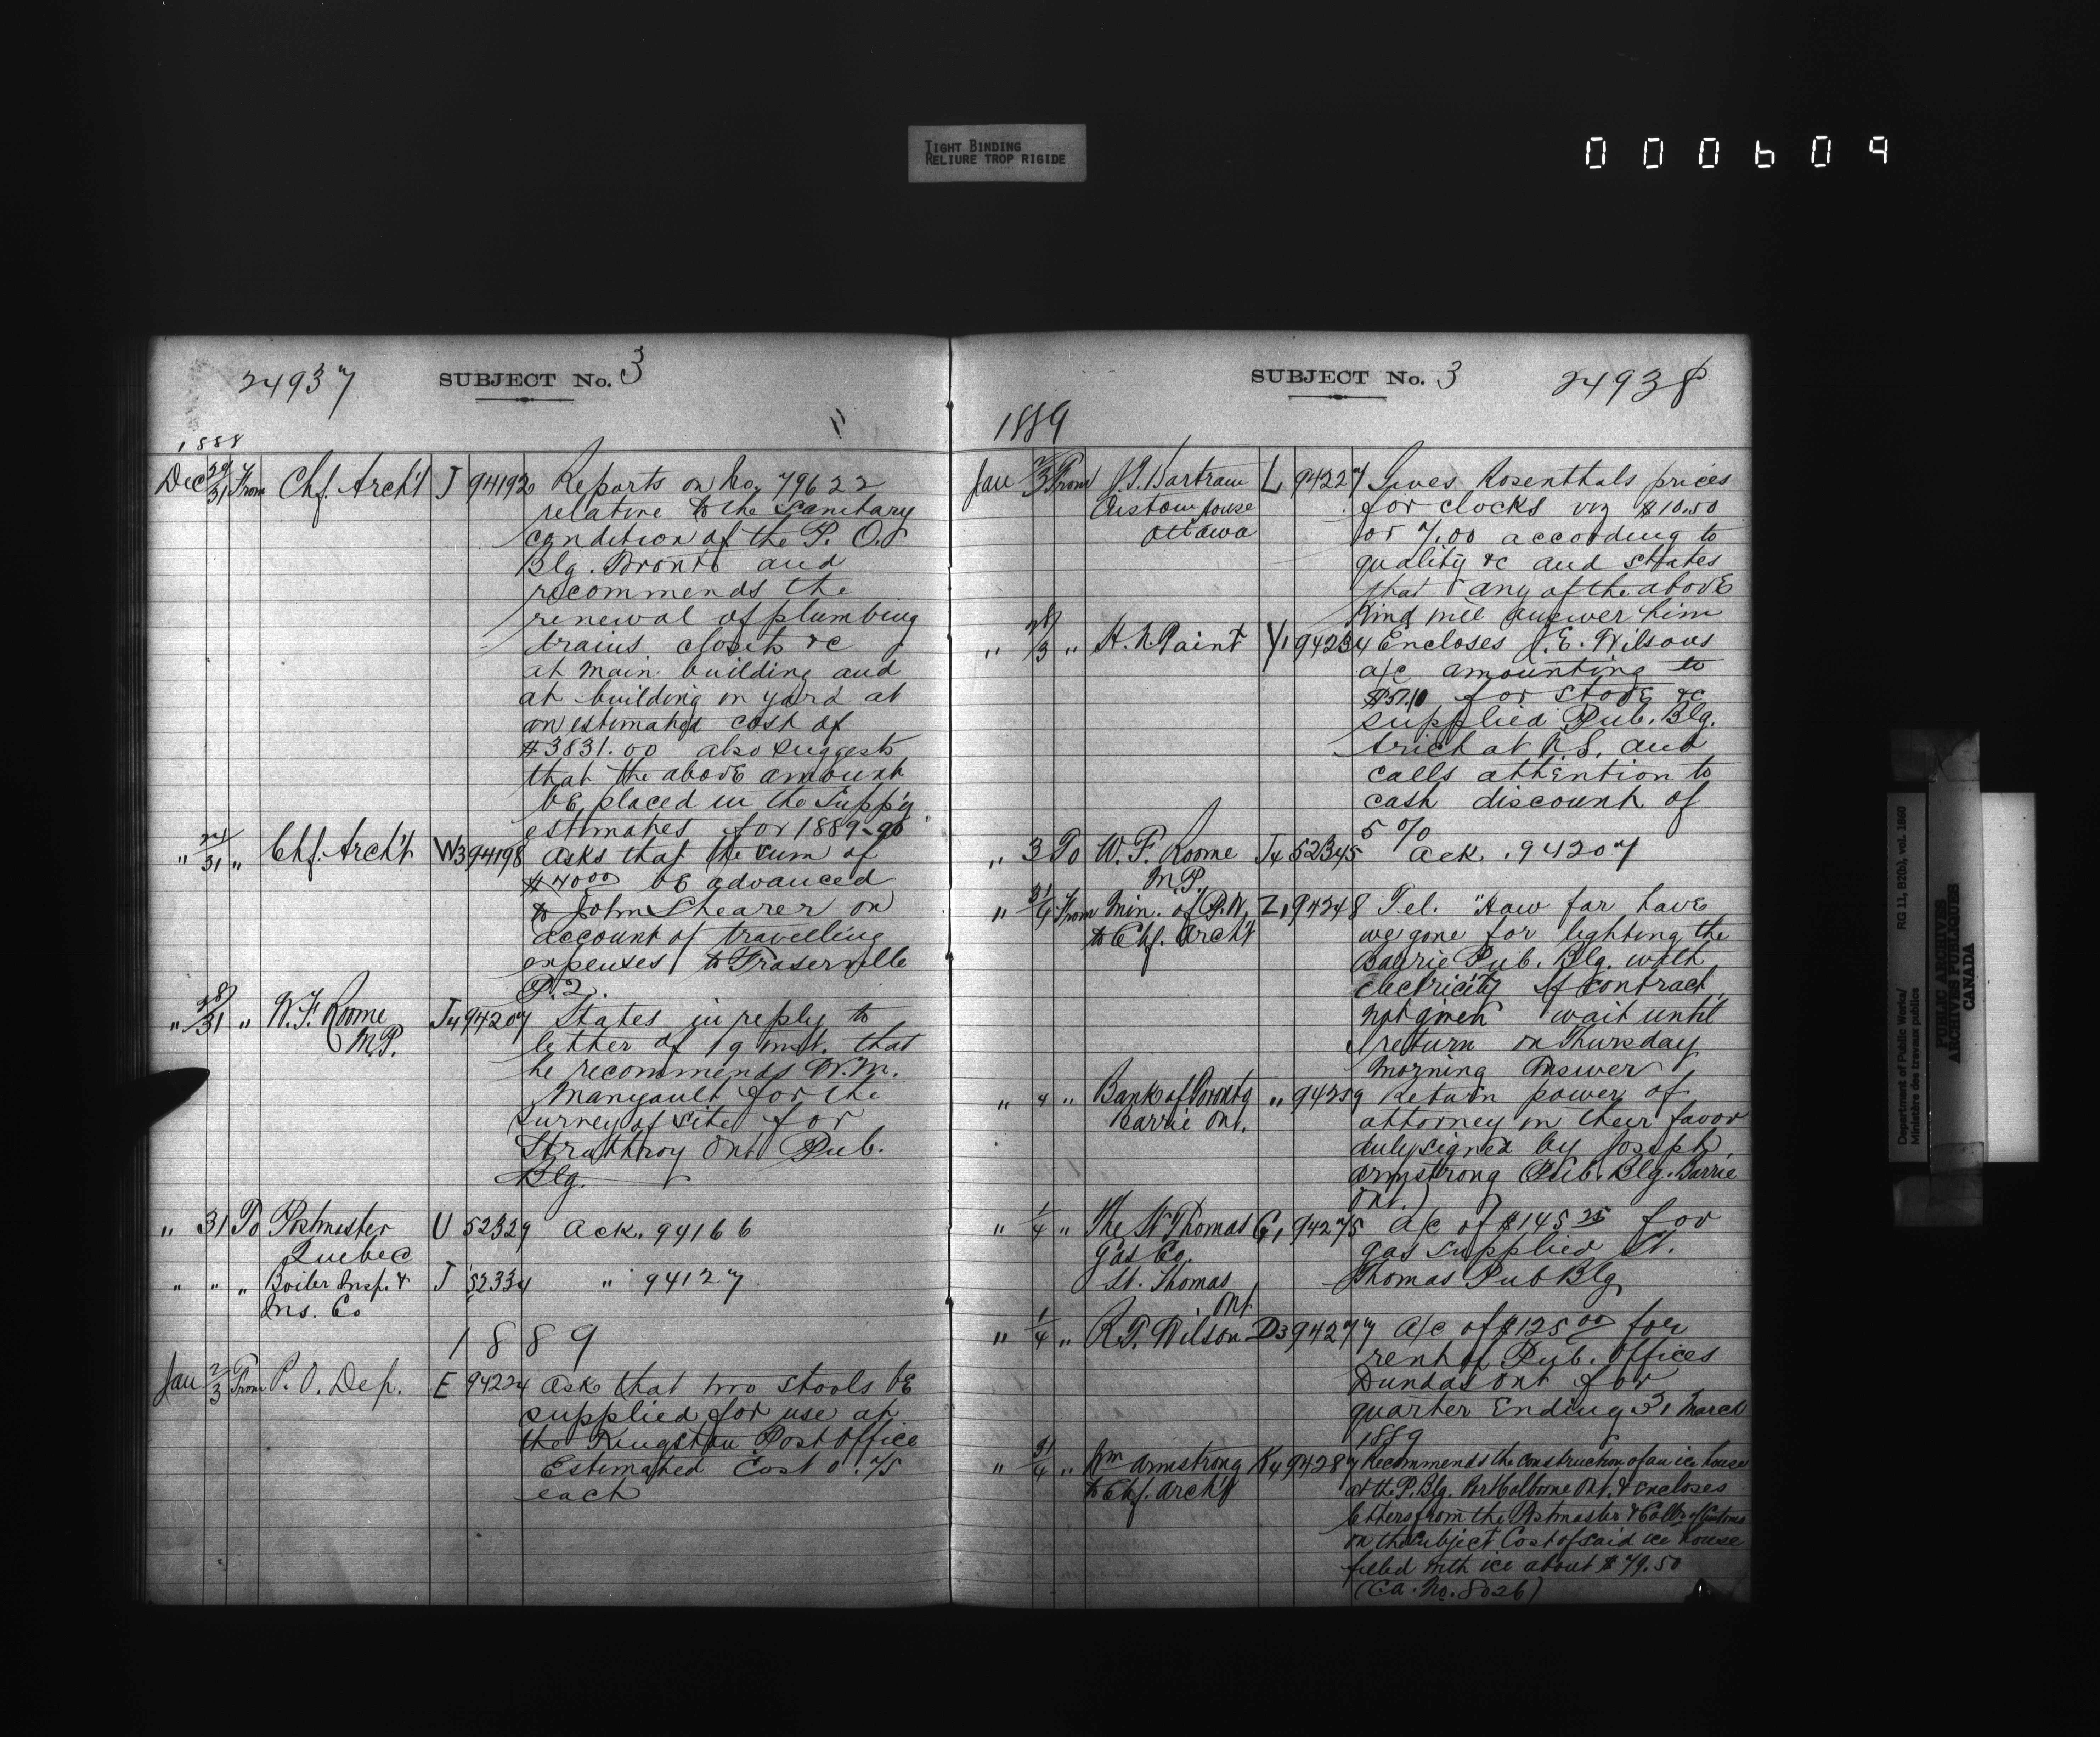 TIGHT BINDING
RELIURE TROP RIGIDE
000609
24937 SUBJECT No. 3
1888
Dec 29/31 From Chf. Arch't J 94192 Reports on No. 79622
relative to the Sanitary
condition of the P. O.
Blg. Toronto and
recommends the
renewal of plumbing
drains, closets &c
at main building and
at building in yard at
an estimated cost of
$3831.00 also suggests
that the above amount
be placed in the Supp'y
estimates for 1889-90
" 24/31 " Chf. Arch't W3 94198 Asks that the sum of
$40.00 be advanced
to John Shearer on
account of travelling
expenses to Fraserville
P.2.
" 28/31 " W. F. Roome J4 94207 States in reply to
M.P. letter of 19 inst. that
he recommends W.M.
Manyault for the
survey of site for
Strathroy Ont Pub.
Blg.
" 31 To Postmaster U 52329 Ack. 94166
Quebec
" " " Boiler Insp. & J 52334 " 94127
Ins. Co
1889
Jan 2/3 From P. O. Dep. E 94224 Ask that two stools be
supplied for use at
the Kingston Post Office
Estimated Cost 0.75
each
SUBJECT No. 3 24938
1889
Jan 2/3 From J. T. Bartram L, 94227 Gives Rosenthals prices
Custom house for clocks viz $10.50
Ottawa or 7.00 according to
quality &c and states
that any of the above
kind will answer him
" 28/3 " H. N. Paint Y, 94234 Encloses J. E. Wilsons
a/c amounting to
for stove &c
supplied Pub. Blg.
Arichat N.S. and
calls attention to
cash discount of
5 %
" 3 To W. F. Roome J4 52345 Ack. 94207
M.P.
" 31/4 From Min. of P.W. Z, 94248 Tel. "How far have
to Chf. Arch't we gone for lighting the
Barrie Pub. Blg. with
electricity If contract
not given wait until
I return on Thursday
Morning Answer
" 4 " Bank of Toronto " 94259 Return power of
Barrie Ont. attorney in their favor
duly signed by Joseph
Armstrong (Pub. Blg. Barrie
Ont.)
" 1/4 " The St Thomas G, 94275 a/c of $145 25 for
Gas Co. gas supplied St.
St. Thomas Thomas Pub Blg
Ont
" 1/4 " R. T. Wilson D3 94277 a/c of $125 00 for
rent of Pub. Offices
Dundas Ont for
quarter Ending 31 March
1889
" 31/4 " Wm Armstrong K4 94287 Recommends the construction of an ice house
to Chf. Arch't at the P. Blg. Port Colborne Ont. & encloses
letters from the Postmaster & Collr of Customs
on the subject Cost of said ice house
filled with ice about $79.50
(Ca. No. 8026)
Department of Public Works/ RG 11, B2(b), vol. 1860
Ministère des travaux publics
PUBLIC ARCHIVES
ARCHIVES PUBLIQUES
CANADA